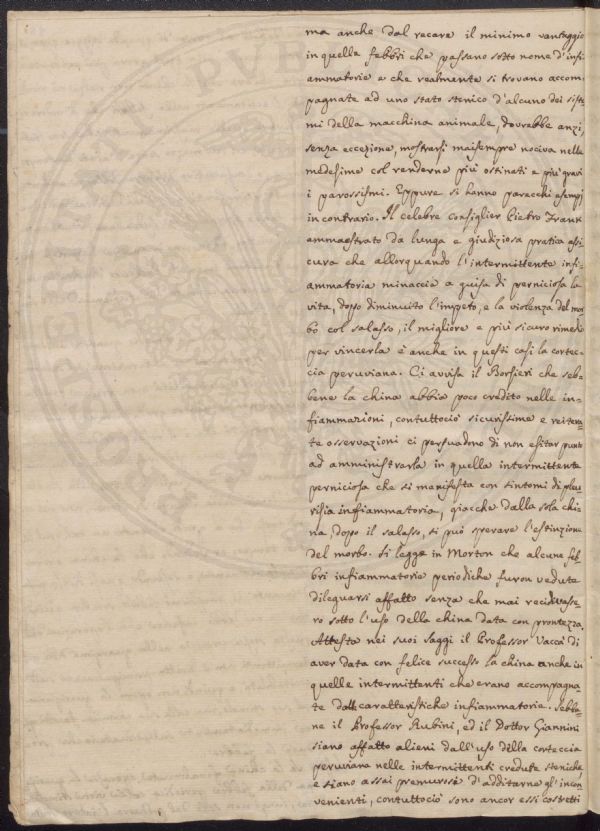 ma anche dal recare il minimo vantaggio
in quelle febbri che passano sotto nome d'infi-
ammatorie e che realmente si trovano accom
pagnate ad uno stato stenico d'alcuno dei siste
mi della macchina animale, dovrebbe anzi,
senza eccezione, mostrarsi maisempre nociva nelle
medesime col renderne più ostinati e più gravi
i parossismi. Eppure si hanno parecchi esempj
in contrario. Il celebre consiglier Pietro Frank
ammaestrato da lunga e giudiziosa pratica assi
cura che allorquando l'intermittente infi-
ammatoria minaccia a guisa di perniciosa la
vita, dopo diminuito l'impeto, e la violenza del mor
bo col salasso, il migliore e più sicuro rimedio
per vincerla è anche in questi casi la cortec-
cia peruviana. Ci avvisa il Borsieri che seb-
bene la china abbia poco credito nelle in-
fiammazioni, contuttociò sicurissime e reitera-
te osservazioni ci persuadono di non esitar punto
ad amministrarla in quella intermittente
perniciosa che si manifesta con sintomi di pleu-
risia infiammatoria, giacchè dalla sola chi-
na, dopo il salasso, si può sperare l'estinzione
del morbo. Si legge in Morton che alcune feb-
bri infiammatorie periodiche furon vedute
dileguarsi affatto senza che mai recidivasse-
ro sotto l'uso della china data con prontezza.
Attesta nei suoi saggi il Professor Vaccà di
aver data con felice successo la china anche in
quelle intermittenti che erano accompagna-
te dalle caratteristiche infiammatorie. Sebbe-
ne il Professor Rubini, ed il Dottor Giannini
siano affatto alieni dall'uso della corteccia
peruviana nelle intermittenti credute steniche,
e siano assai premurosi d'additarne gl'incon
venienti, contuttociò sono ancor essi costretti
PVB